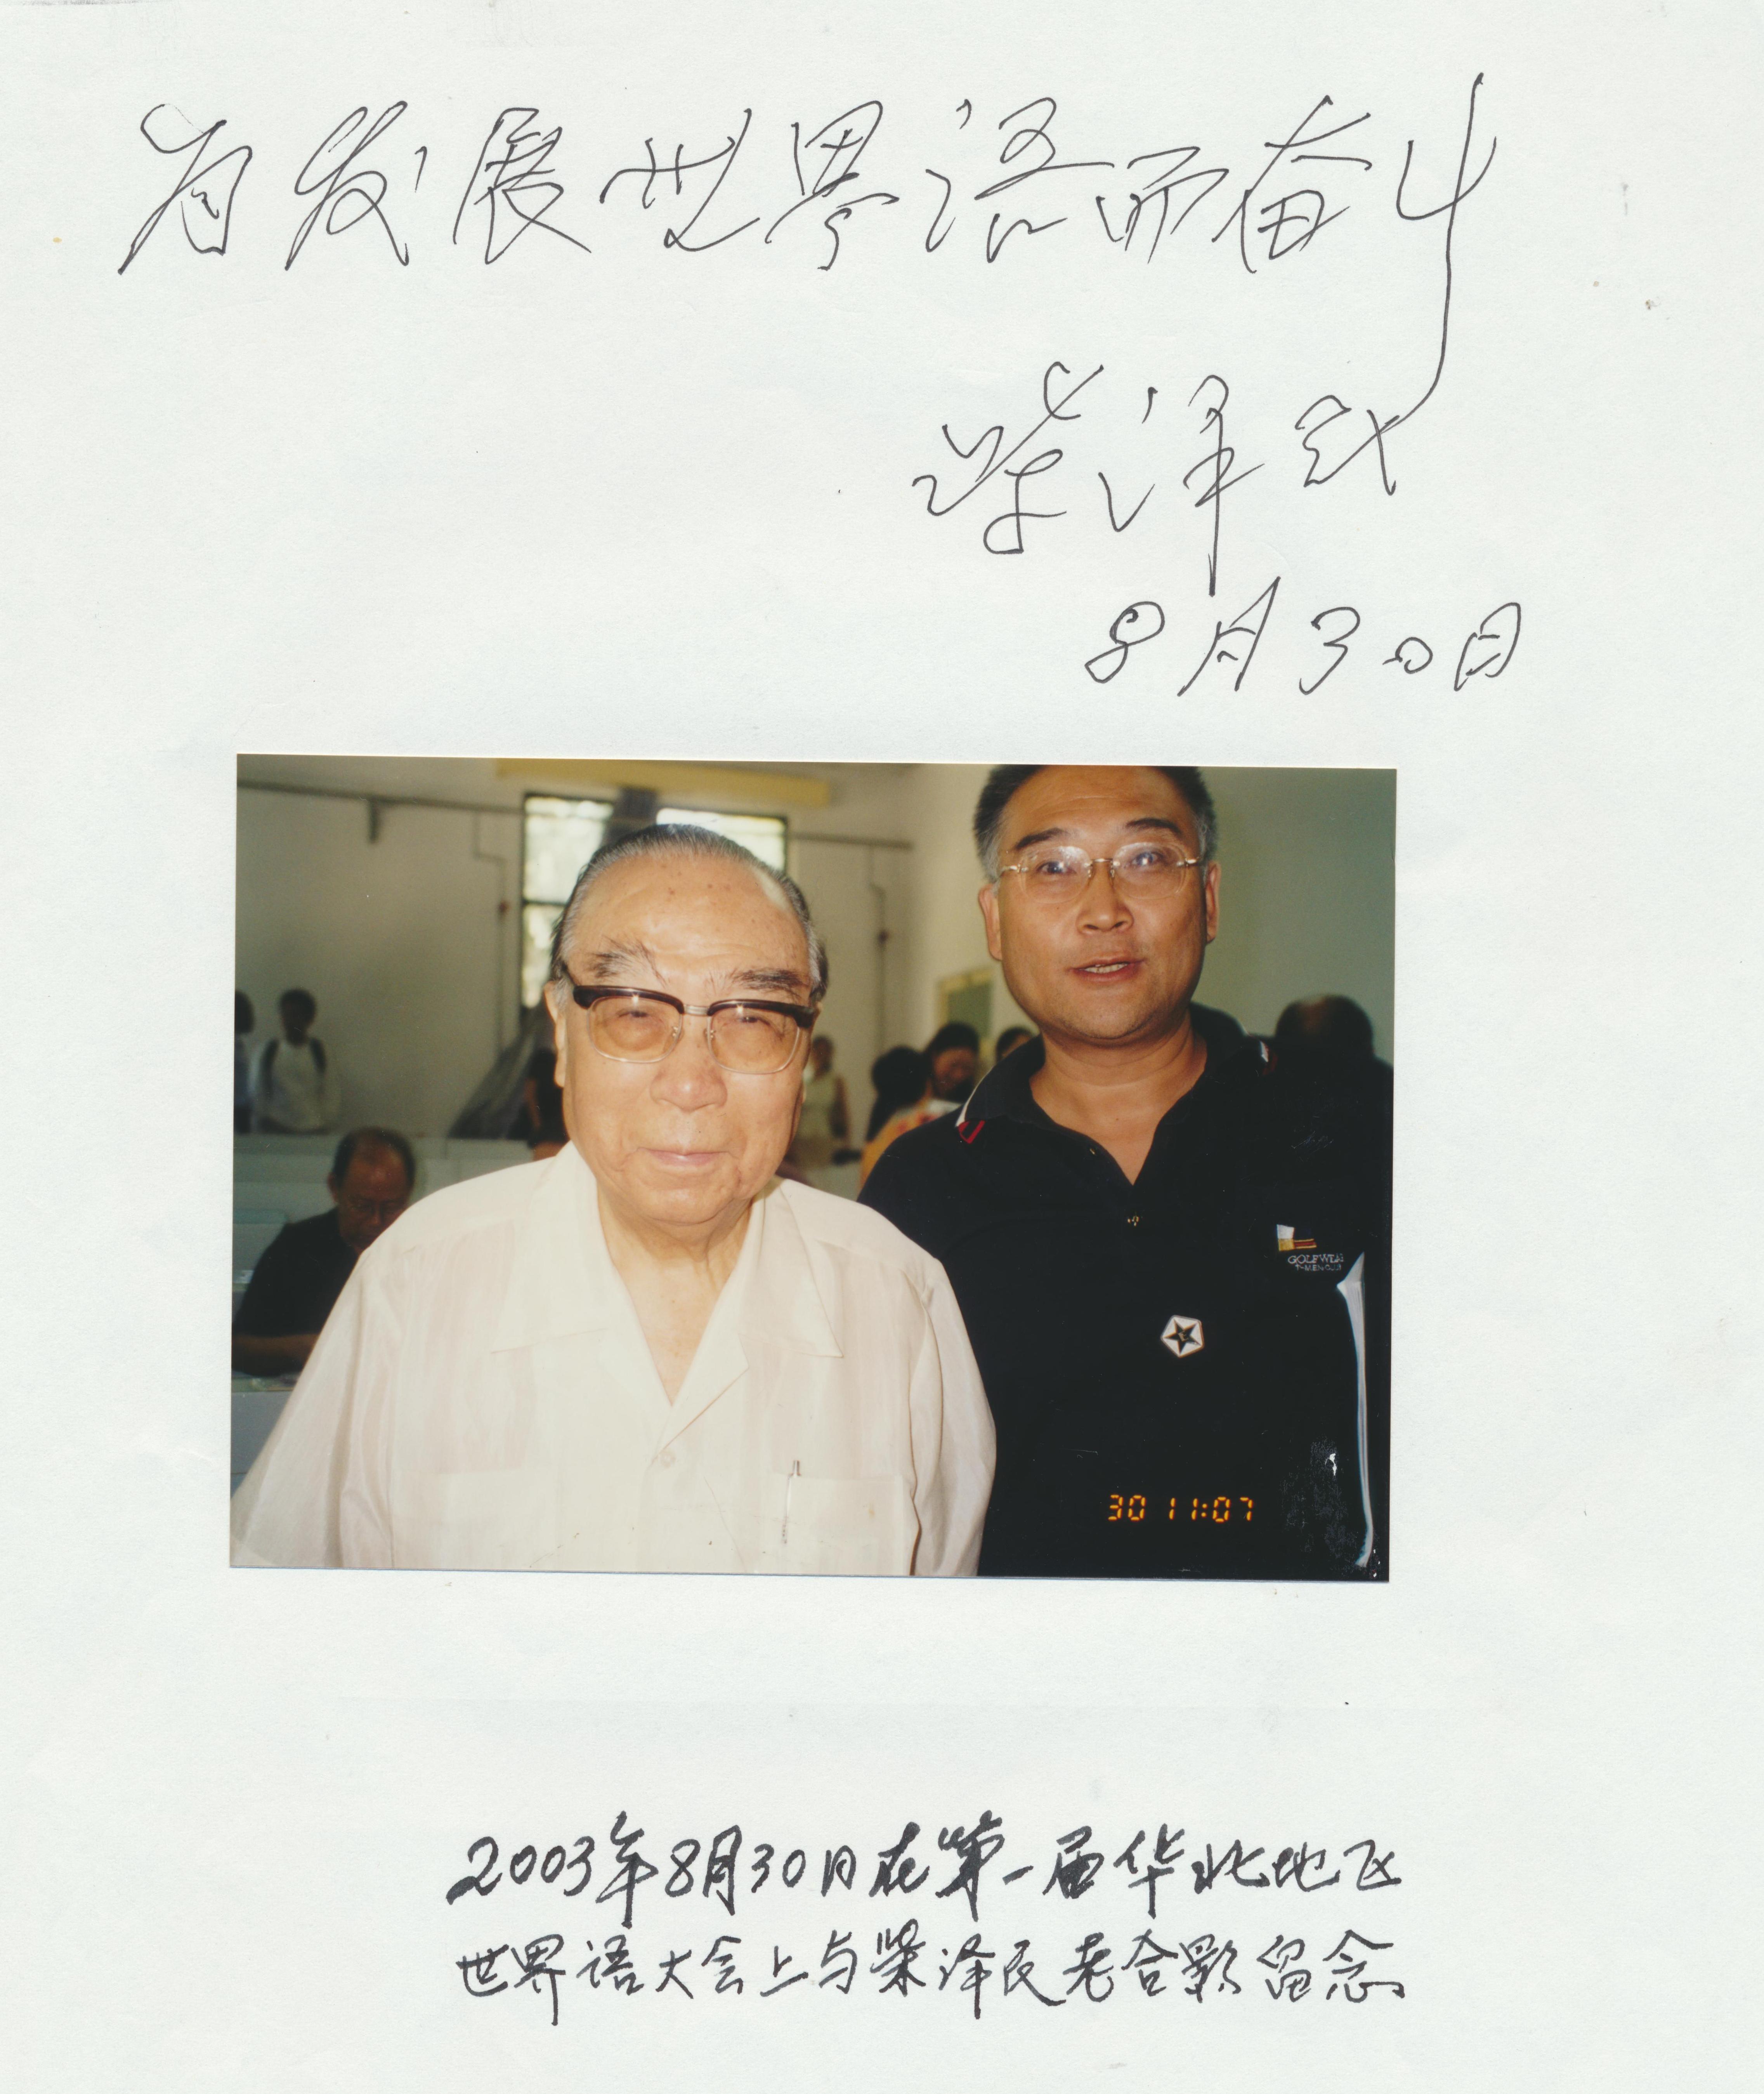 为发展世界语而奋斗
柴泽民
8月30日
GOLFWIN
30 11:07
2003年8月30日在第一届华北地区
世界语大会上与柴泽民老合影留念